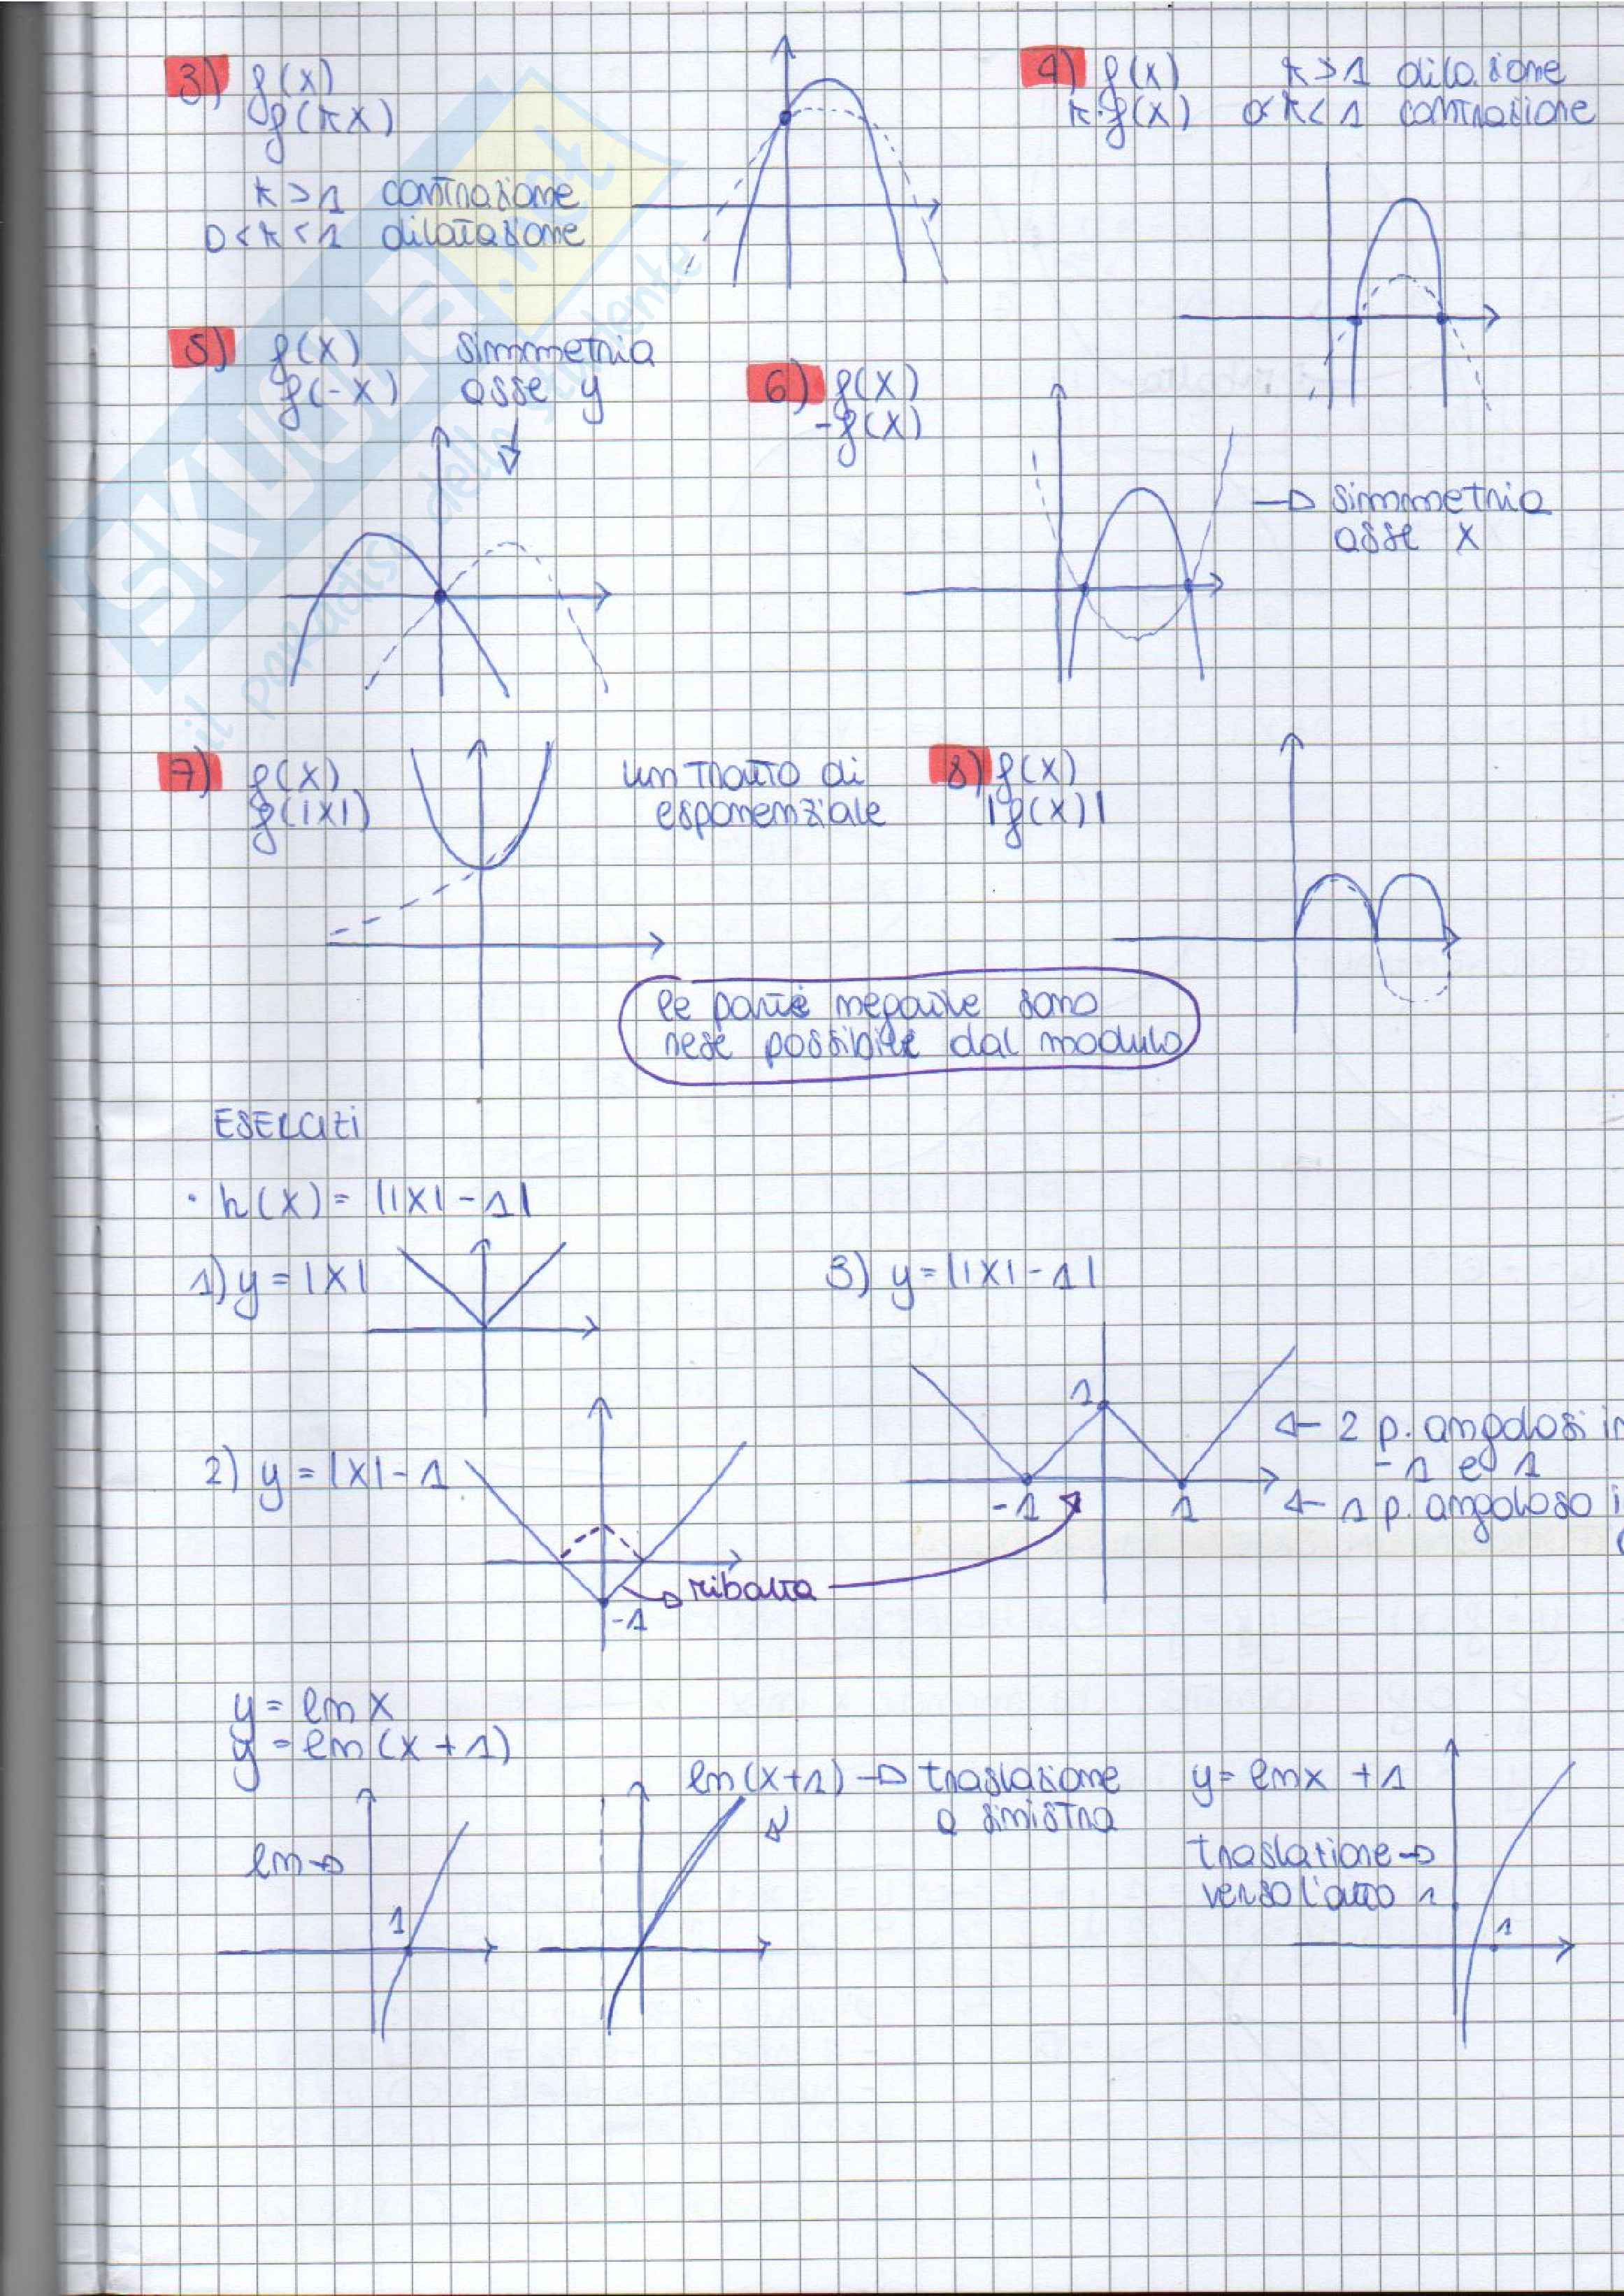 3) f(x)
f(kx)
k>1 contrazione
0<k<1 dilatazione
4) f(x) k>1 dilazione
k·f(x) 0<k<1 contrazione
5) f(x) simmetria
f(-x) asse y
6) f(x)
-f(x)
→ simmetria
asse x
7) f(x)
f(|x|)
un tratto di
esponenziale
8) f(x)
|f(x)|
le parti negative sono
rese possibile dal modulo
ESERCIZI
· h(x) = ||x|-1|
1) y = |x|
3) y = ||x|-1|
1
-1
1
← 2 p. angolosi in
-1 e 1
← 1 p. angoloso i
2) y = |x|-1
→ ribalta
-1
y = ln x
y = ln(x+1)
ln →
1
ln(x+1) → traslazione
a sinistra
y = lnx +1
traslazione →
verso l'alto 1
1
SKUOLA.net
il paradiso dello studente